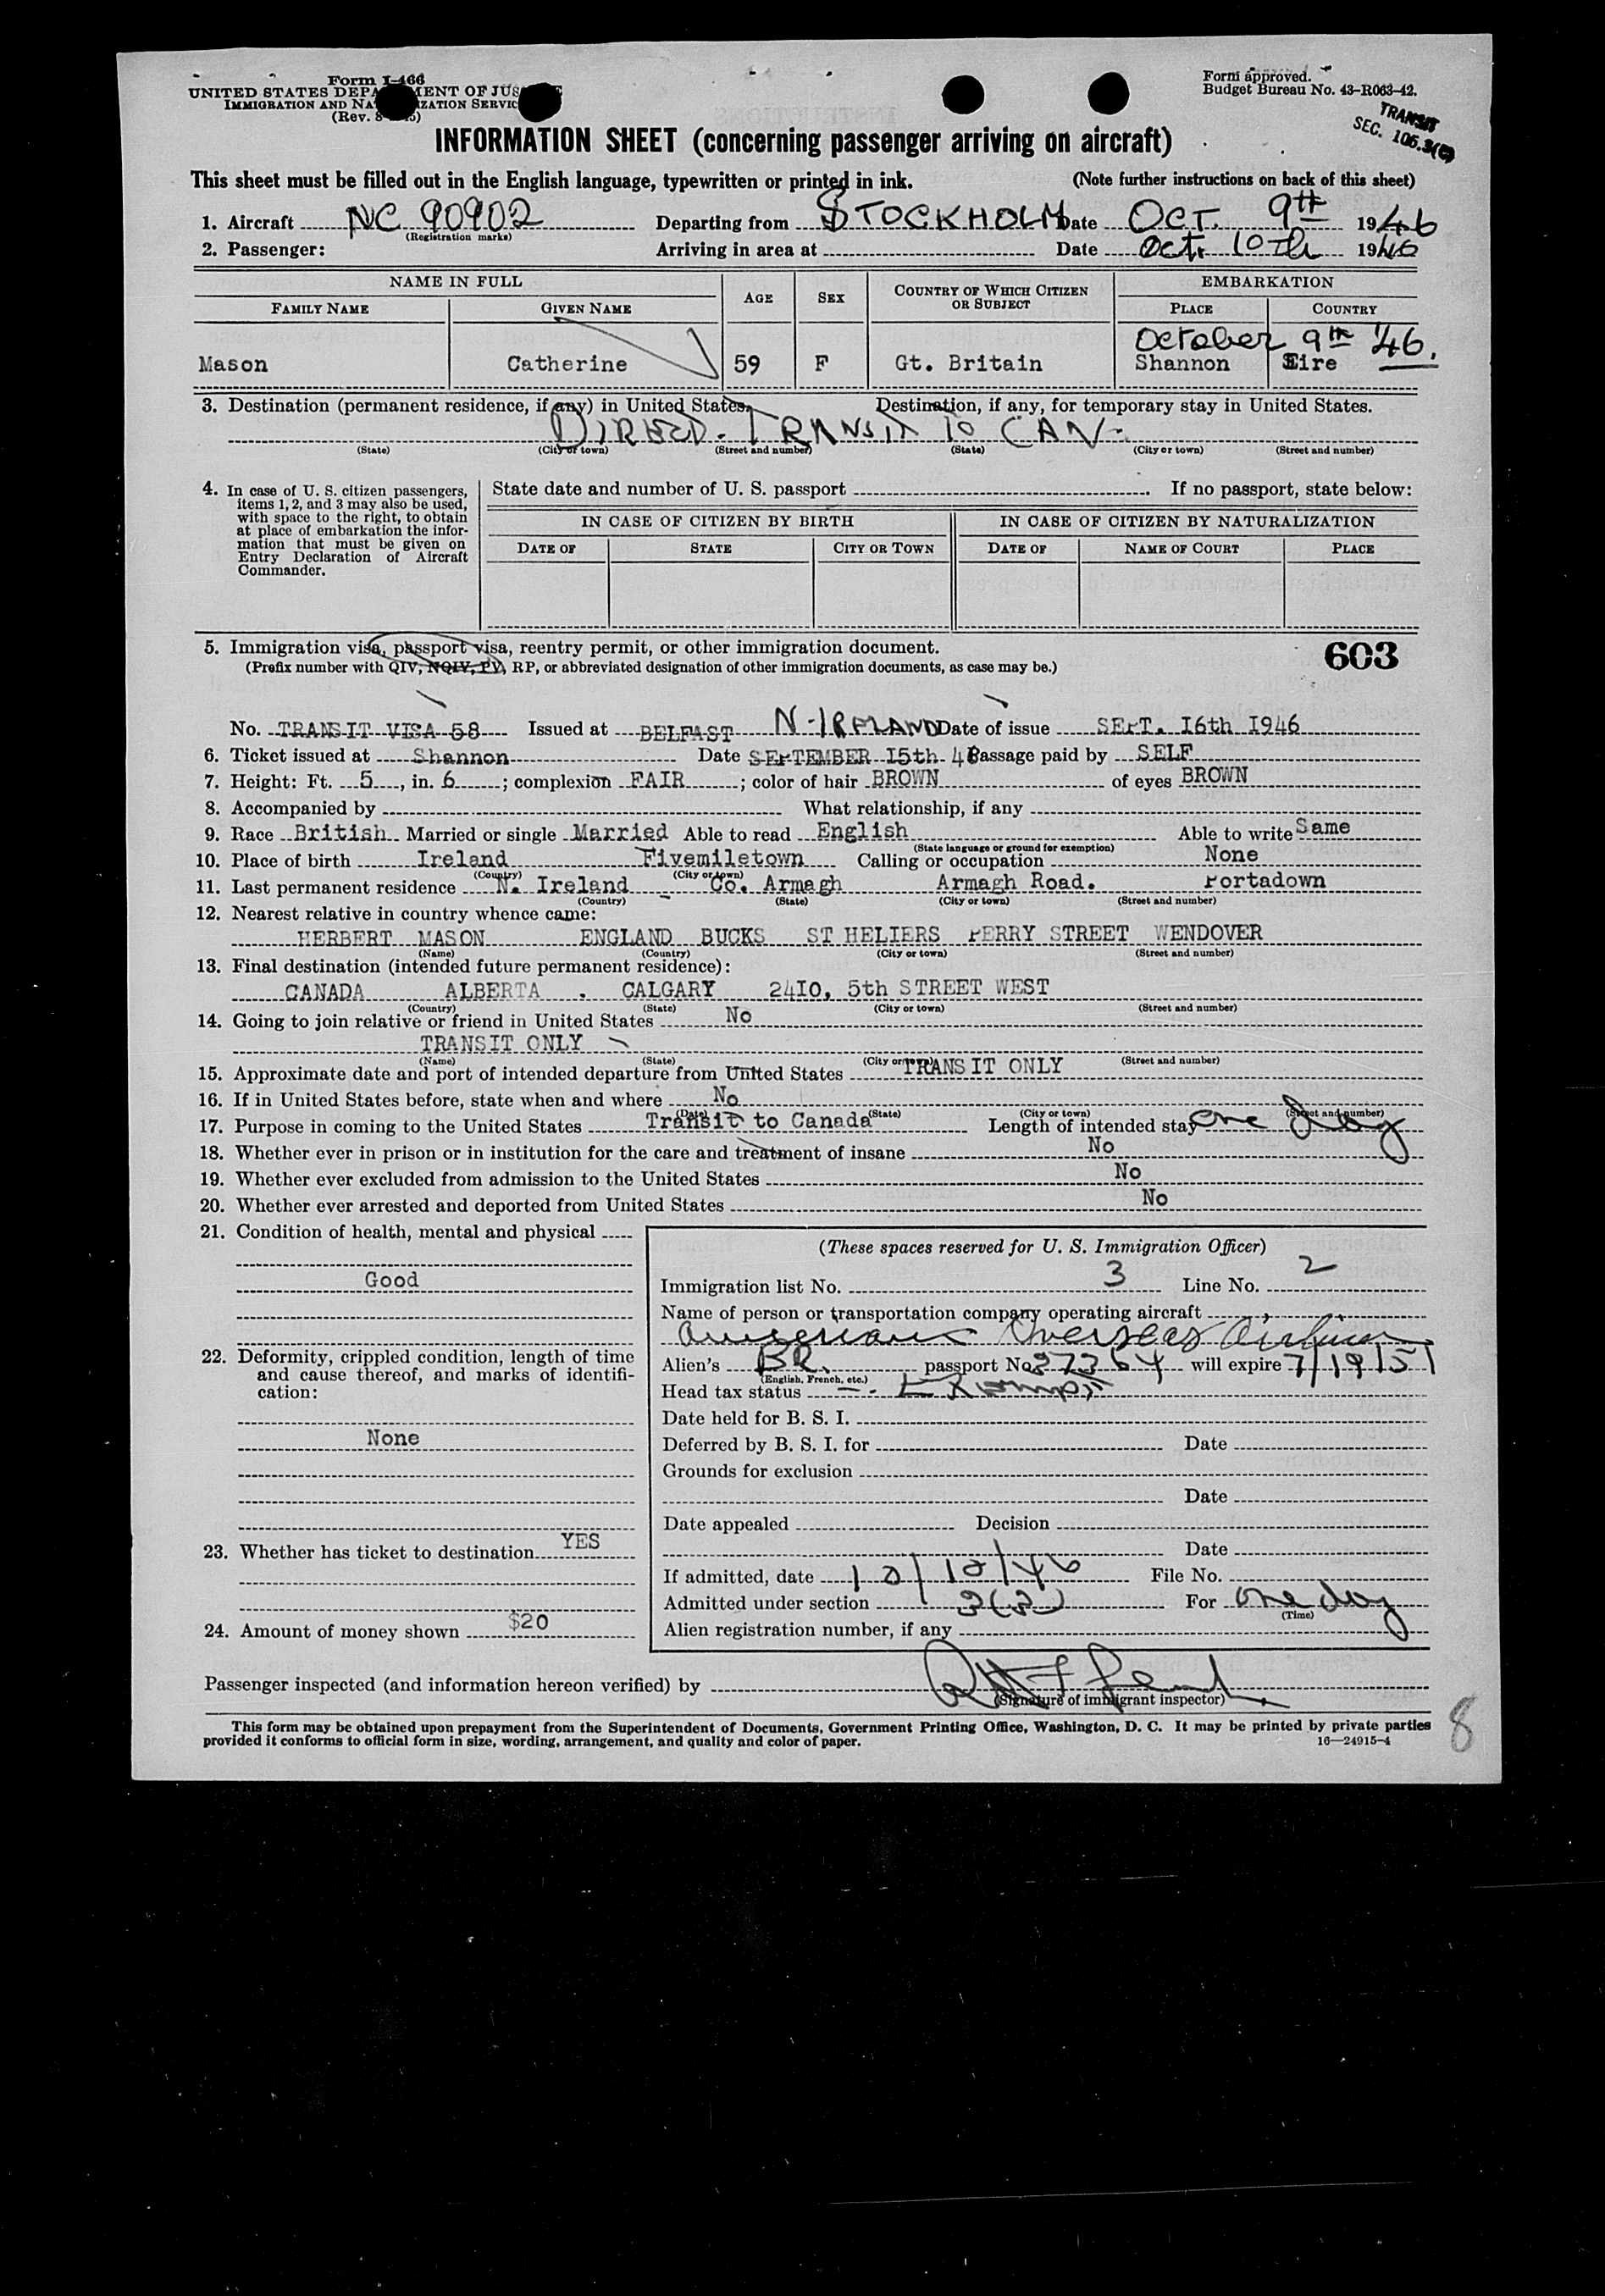 Form I-466
UNITED STATES DEPARTMENT OF JUSTICE
IMMIGRATION AND NATURALIZATION SERVICE
(Rev. 8
Form approved.
Budget Bureau No. 43-R063-42.
TRANSIT
SEC. 105.3(
INFORMATION SHEET (concerning passenger arriving on aircraft)
This sheet must be filled out in the English language, typewritten or printed in ink. (Note further instructions on back of this sheet)
1. Aircraft NC 90902 Departing from STOCKHOLM Date OCT. 9th 1946
(Registration marks)
2. Passenger: Arriving in area at Date Oct. 10th 1946
NAME IN FULL AGE SEX COUNTRY OF WHICH CITIZEN OR SUBJECT EMBARKATION
FAMILY NAME GIVEN NAME PLACE COUNTRY
October 9th '46.
Mason Catherine 59 F Gt. Britain Shannon Eire
3. Destination (permanent residence, if any) in United States. Destination, if any, for temporary stay in United States.
DIRECT TRANSIT TO CAN.
(State) (City or town) (Street and number) (State) (City or town) (Street and number)
4. In case of U. S. citizen passengers, items 1, 2, and 3 may also be used, with space to the right, to obtain at place of embarkation the information that must be given on Entry Declaration of Aircraft Commander.
State date and number of U. S. passport . If no passport, state below:
IN CASE OF CITIZEN BY BIRTH IN CASE OF CITIZEN BY NATURALIZATION
DATE OF STATE CITY OR TOWN DATE OF NAME OF COURT PLACE
5. Immigration visa, passport visa, reentry permit, or other immigration document.
(Prefix number with QIV, NQIV, PV, RP, or abbreviated designation of other immigration documents, as case may be.)
603
No. TRANSIT VISA 58 Issued at BELFAST N-IRELAND Date of issue SEPT. I6th I946
6. Ticket issued at Shannon Date SEPTEMBER I5th 46 Passage paid by SELF
7. Height: Ft. 5, in. 6; complexion FAIR; color of hair BROWN of eyes BROWN
8. Accompanied by What relationship, if any
9. Race British Married or single Married Able to read English Able to write Same
(State language or ground for exemption)
10. Place of birth Ireland Fivemiletown Calling or occupation None
(Country) (City or town)
11. Last permanent residence N. Ireland Co. Armagh Armagh Road. Portadown
(Country) (State) (City or town) (Street and number)
12. Nearest relative in country whence came:
HERBERT MASON ENGLAND BUCKS ST HELIERS PERRY STREET WENDOVER
(Name) (Country) (City or town) (Street and number)
13. Final destination (intended future permanent residence):
CANADA ALBERTA . CALGARY 24I0, 5th STREET WEST
(Country) (State) (City or town) (Street and number)
14. Going to join relative or friend in United States No
TRANSIT ONLY
(Name) (State) (City or town) (Street and number)
15. Approximate date and port of intended departure from United States TRANSIT ONLY
16. If in United States before, state when and where No
(Date) (State) (City or town) (Street and number)
17. Purpose in coming to the United States Transit to Canada Length of intended stay one day
18. Whether ever in prison or in institution for the care and treatment of insane No
19. Whether ever excluded from admission to the United States No
20. Whether ever arrested and deported from United States No
21. Condition of health, mental and physical
Good
22. Deformity, crippled condition, length of time and cause thereof, and marks of identification:
None
23. Whether has ticket to destination YES
24. Amount of money shown $20
(These spaces reserved for U. S. Immigration Officer)
Immigration list No. 3 Line No. 2
Name of person or transportation company operating aircraft
American Overseas Airlines
Alien's BR. passport No. 27364 will expire 7/19/51
(English, French, etc.)
Head tax status Exempt
Date held for B. S. I.
Deferred by B. S. I. for Date
Grounds for exclusion
Date
Date appealed Decision
Date
If admitted, date 10/10/46 File No.
Admitted under section 3(3) For one day
(Time)
Alien registration number, if any
Passenger inspected (and information hereon verified) by
(Signature of immigrant inspector)
This form may be obtained upon prepayment from the Superintendent of Documents, Government Printing Office, Washington, D. C. It may be printed by private parties
provided it conforms to official form in size, wording, arrangement, and quality and color of paper. 16—24915-4
8